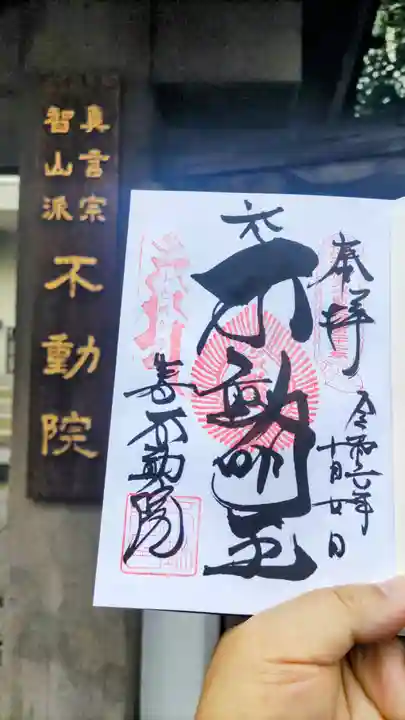 真言宗
智山派
不動院
奉拝
令和六年
十月廿日
不動明王
不動院